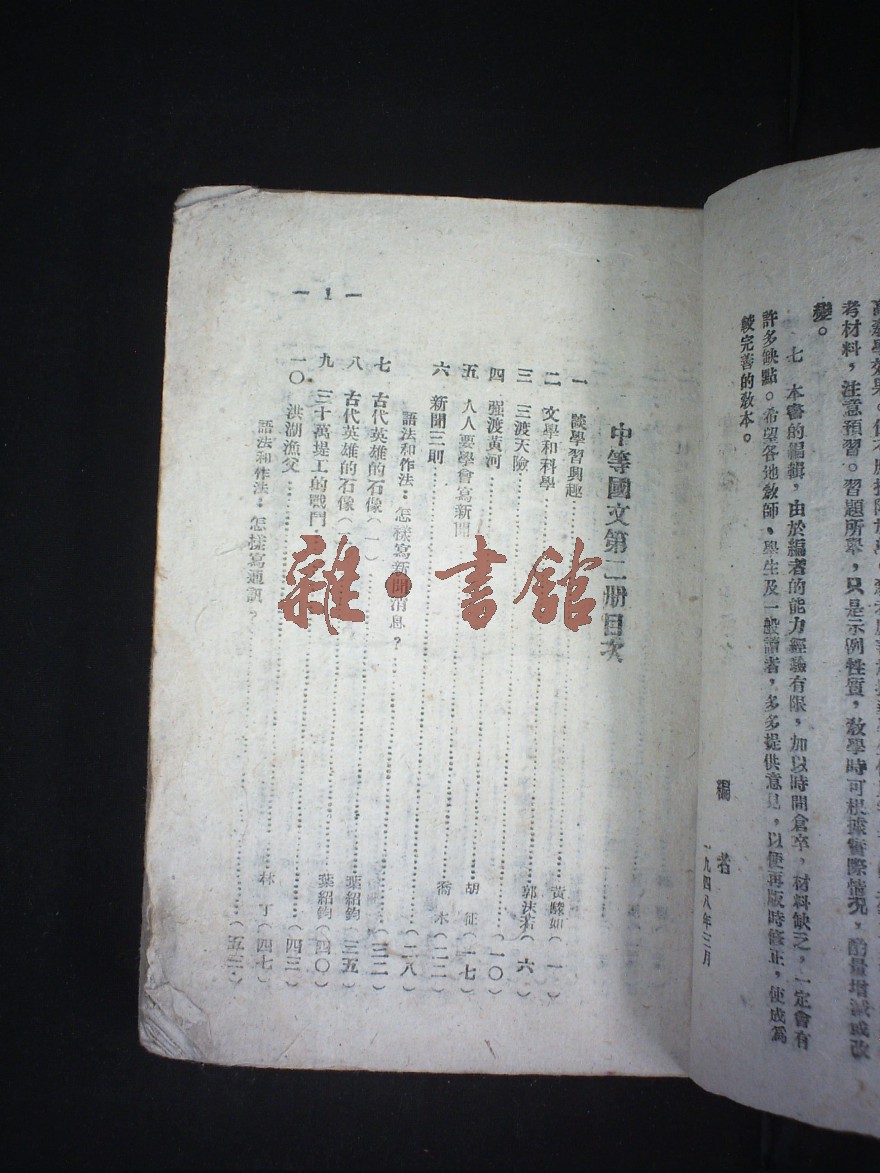 考材料，注意預習。習題所舉，只是示例性質，教學時可根據實際情況，酌量增減或改
變。
七　本書的編輯，由於編者的能力經驗有限，加以時間倉卒，材料缺乏，一定會有
許多缺點。希望各地教師、學生及一般讀者，多多提供意見，以便再版時修正，使成爲
較完善的教本。
編者
一九四八年三月
中等國文第二册目次
一　談學習興趣……黃驍如（一）
二　文學和科學……郭沫若（六）
三　三渡天險……（一〇）
四　强渡黃河……胡征（一七）
五　人人要學會寫新聞……喬木（二二）
六　新聞三則……（二八）
語法和作法：怎樣寫新聞消息？……（三二）
七　古代英雄的石像（一）……葉紹鈞（三五）
八　古代英雄的石像（……葉紹鈞（四〇）
九　三十萬堤工的戰鬥……（四三）
一〇　洪湖漁父……林丁（四七）
語法和作法：怎樣寫通訊？……（五三）
— 1 —
雜·書館